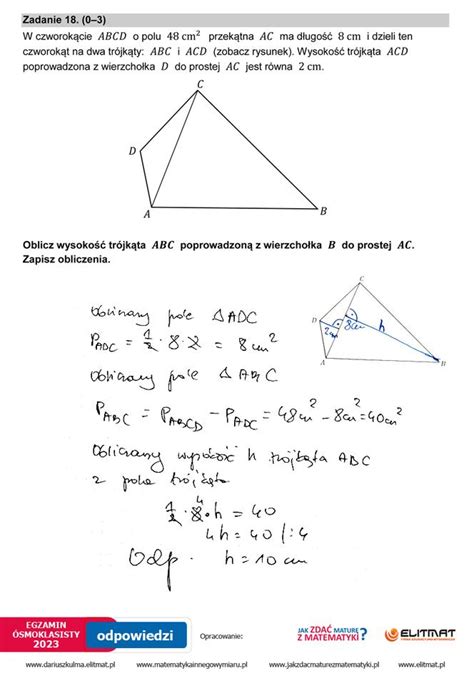 Zadanie 18. (0–3)
W czworokącie ABCD o polu 48 cm² przekątna AC ma długość 8 cm i dzieli ten
czworokąt na dwa trójkąty: ABC i ACD (zobacz rysunek). Wysokość trójkąta ACD
poprowadzona z wierzchołka D do prostej AC jest równa 2 cm.
C
D
A
B
Oblicz wysokość trójkąta ABC poprowadzoną z wierzchołka B do prostej AC.
Zapisz obliczenia.
C
D
2cm
8cm
h
A
B
Obliczamy pole Δ ADC
P_ADC = 1/2 · 8 · 2 = 8 cm²
Obliczamy pole Δ ABC
P_ABC = P_ABCD - P_ADC = 48 cm² - 8 cm² = 40 cm²
Obliczamy wysokość h trójkąta ABC
z pola trójkąta
1/2 · 8 · h = 40
4
4h = 40 /:4
Odp. h = 10 cm
EGZAMIN
ÓSMOKLASISTY
2023
odpowiedzi
Opracowanie:
JAK ZDAĆ MATURĘ
Z MATEMATYKI?
ELITMAT
www.dariuszkulma.elitmat.pl www.matematykainnegowymiaru.pl www.jakzdacmaturezmatematyki.pl www.elitmat.pl